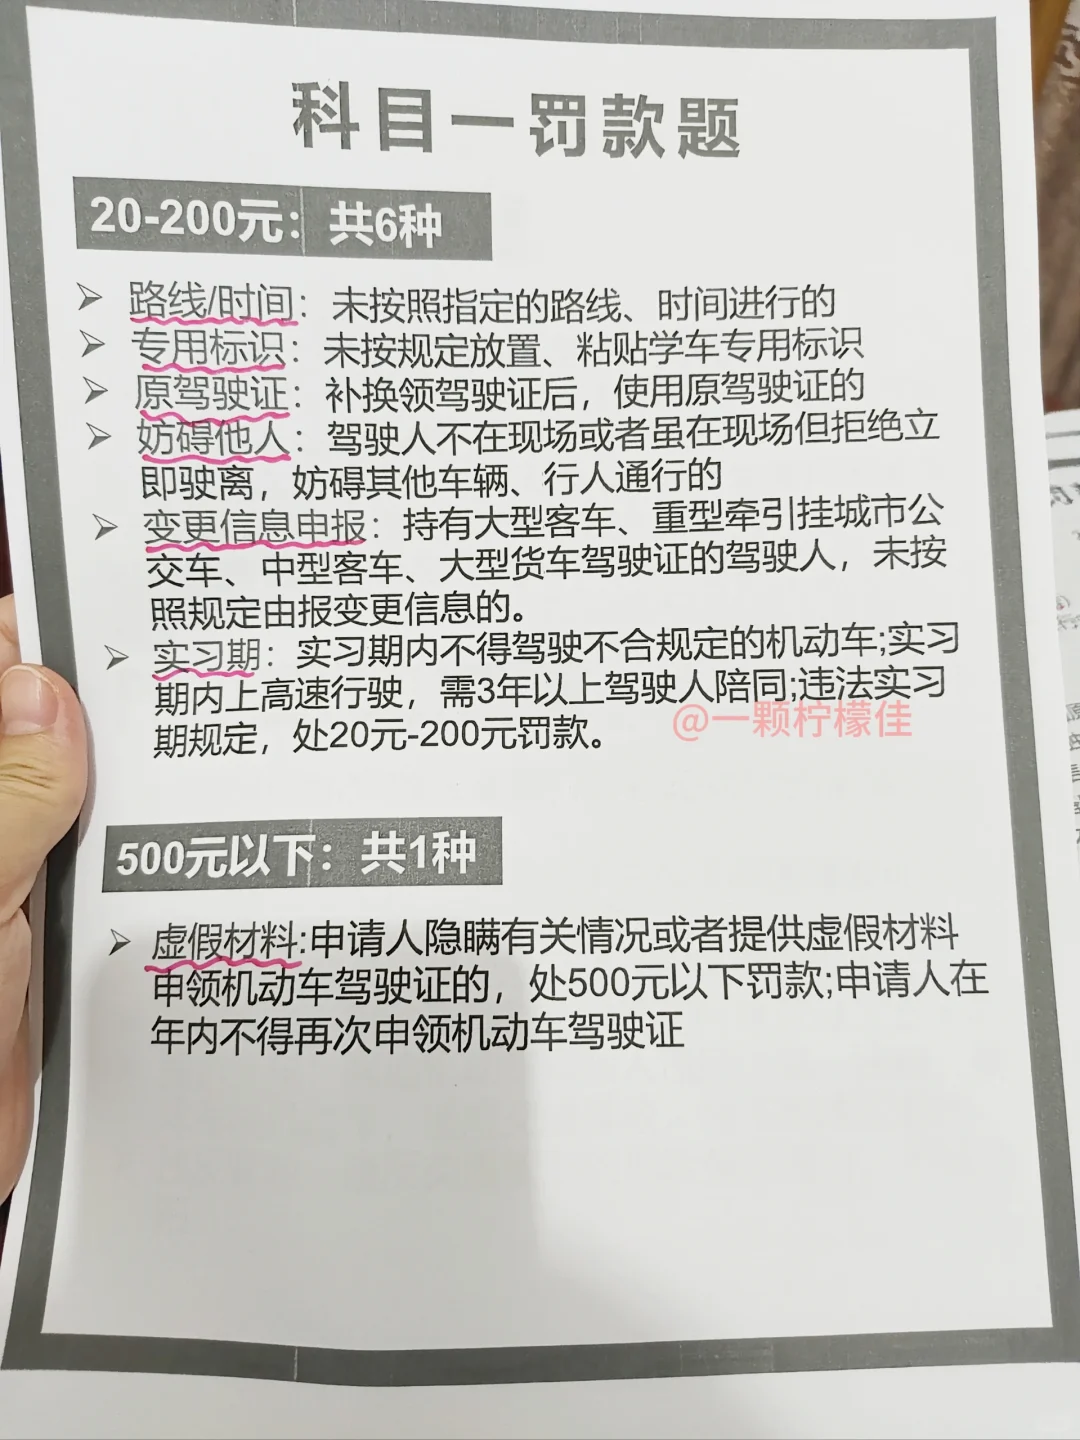 科目一罚款题
20-200元：共6种
➢ 路线/时间：未按照指定的路线、时间进行的
➢ 专用标识：未按规定放置、粘贴学车专用标识
➢ 原驾驶证：补换领驾驶证后，使用原驾驶证的
➢ 妨碍他人：驾驶人不在现场或者虽在现场但拒绝立
即驶离，妨碍其他车辆、行人通行的
➢ 变更信息申报：持有大型客车、重型牵引挂城市公
交车、中型客车、大型货车驾驶证的驾驶人，未按
照规定由报变更信息的。
➢ 实习期：实习期内不得驾驶不合规定的机动车;实习
期内上高速行驶，需3年以上驾驶人陪同;违法实习
期规定，处20元-200元罚款。
@一颗柠檬佳
500元以下：共1种
➢ 虚假材料:申请人隐瞒有关情况或者提供虚假材料
申领机动车驾驶证的，处500元以下罚款;申请人在
年内不得再次申领机动车驾驶证